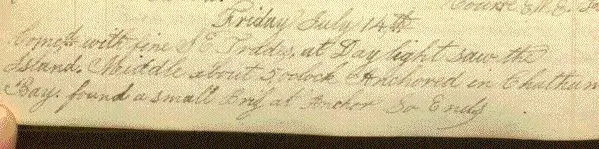 Course
Friday July 14th
Comes with fine S E Trades. at Day light saw the
Island. Middle about 5 oclock Anchored in Chatham
Bay. found a small Brig at Anchor So Ends